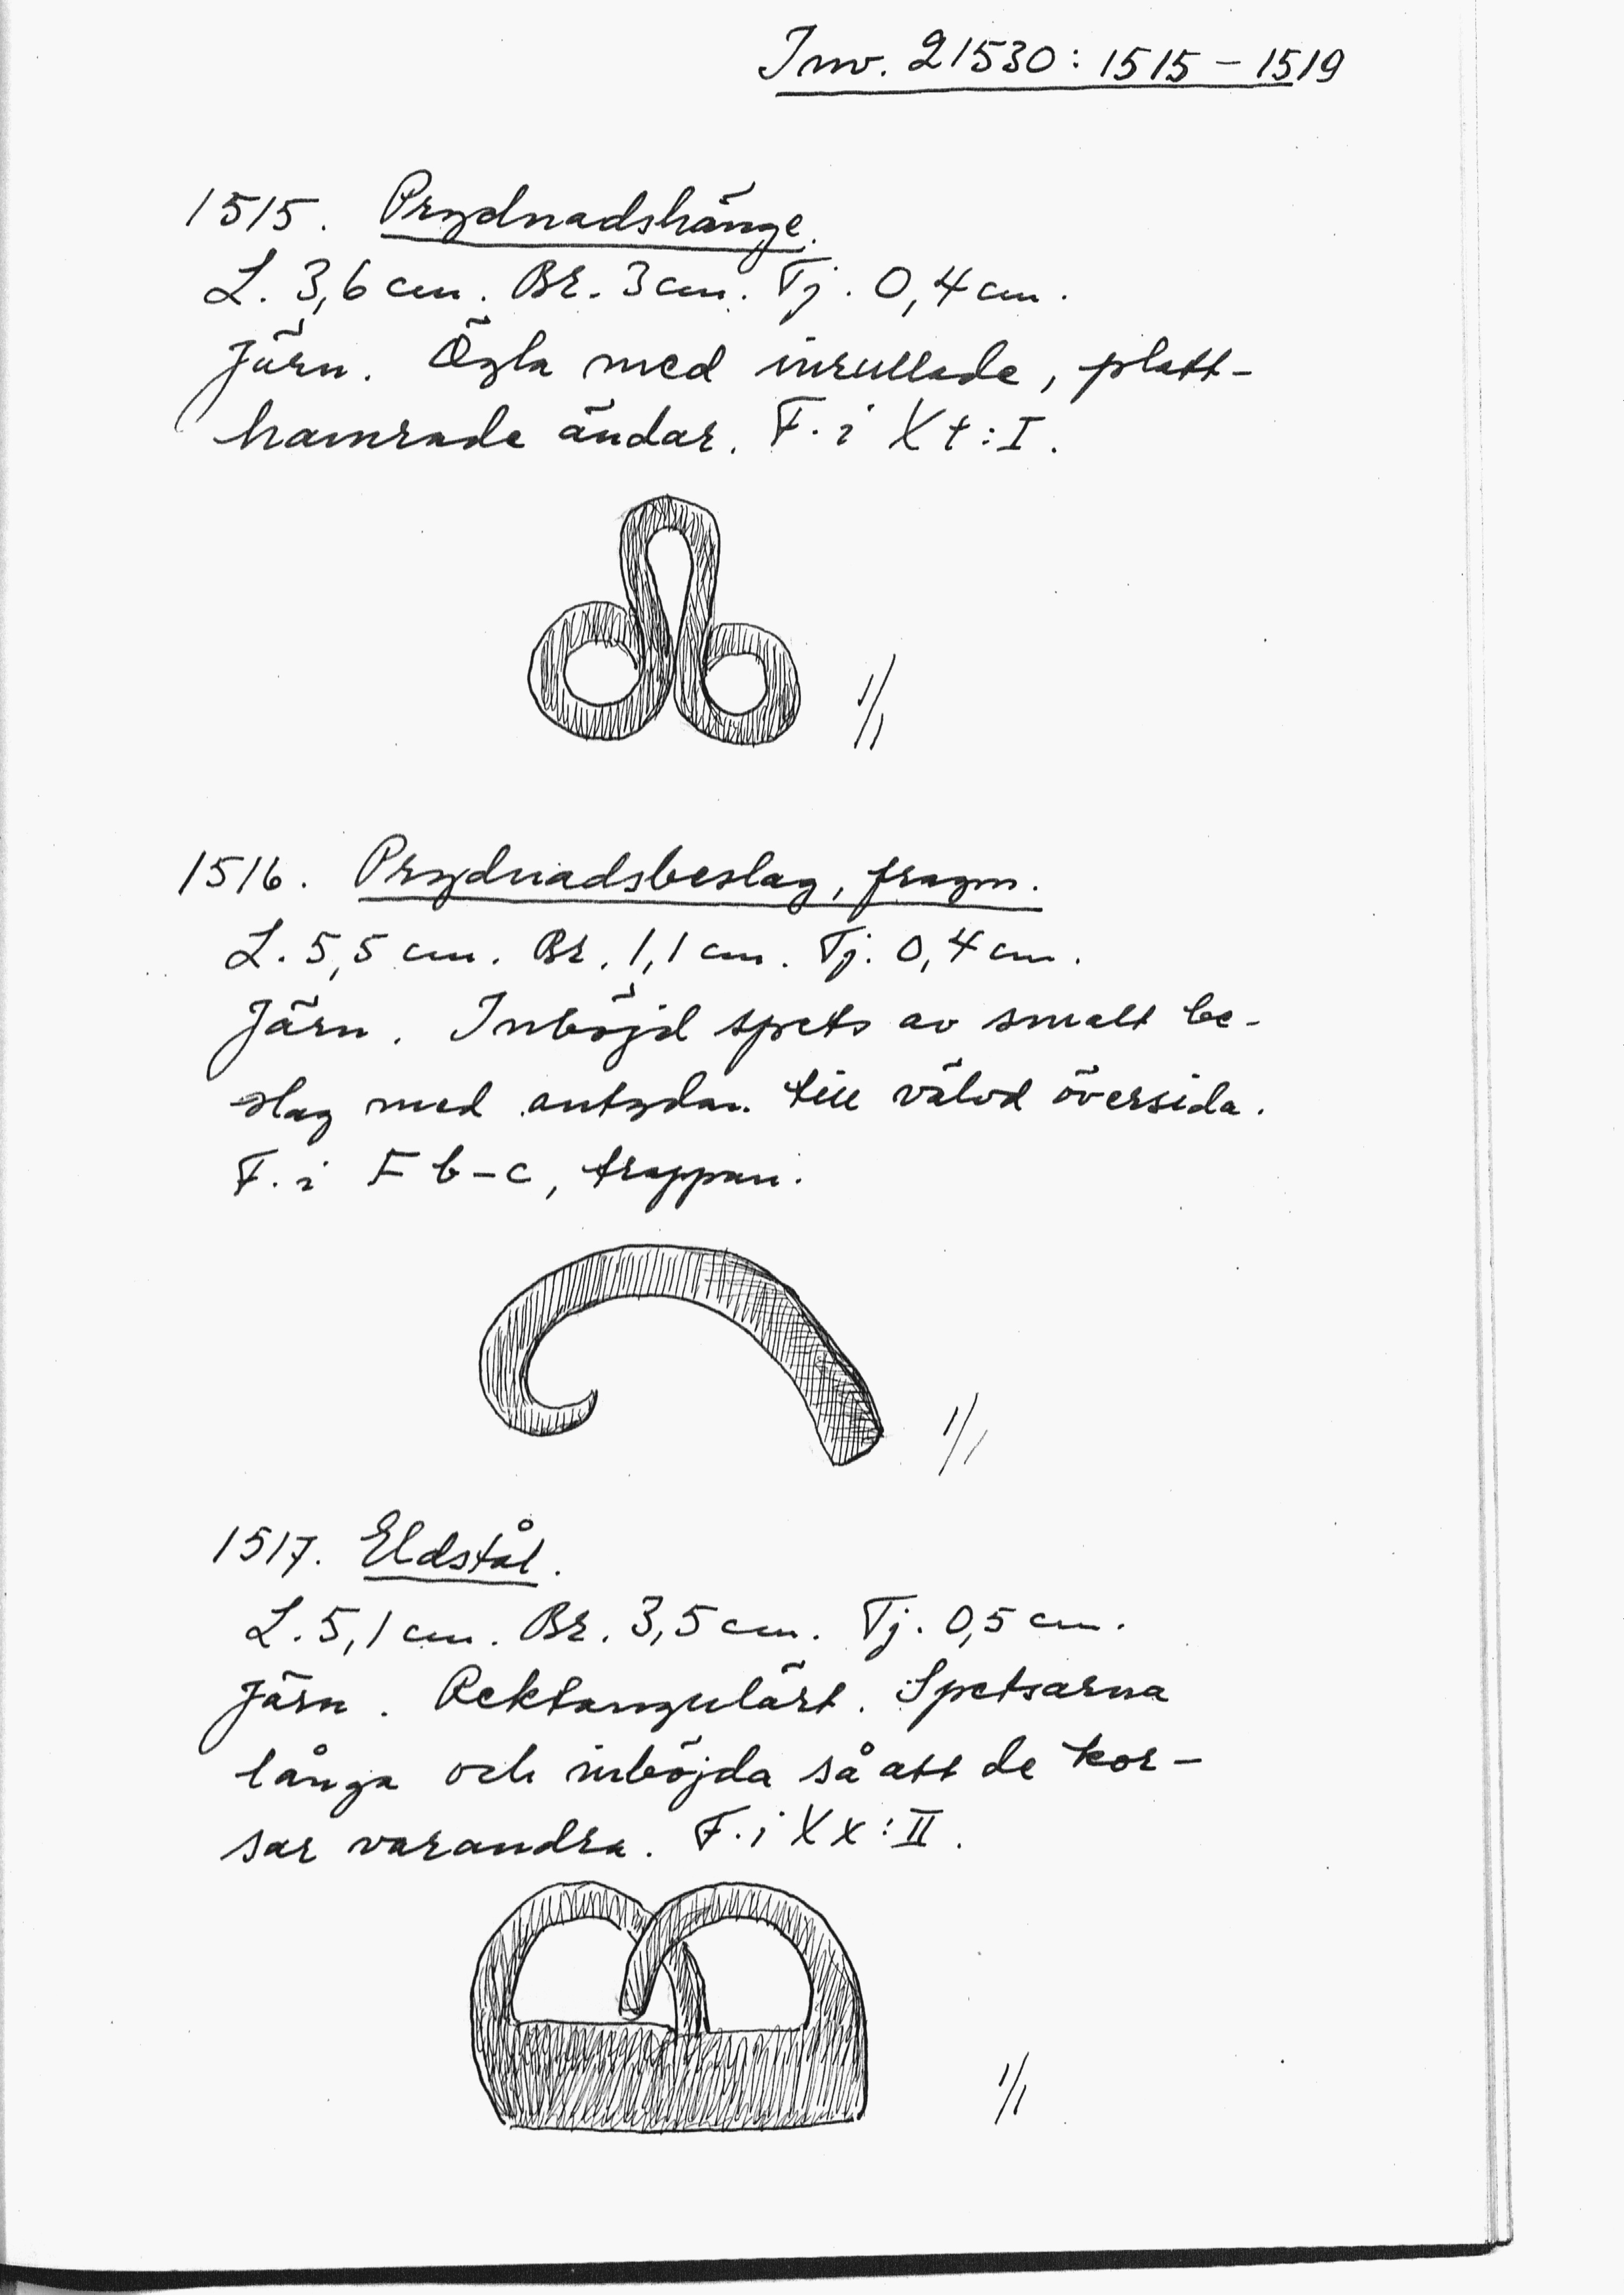 Inv. 21530: 1515 – 1519
1515. Prydnadshänge.
L. 3,6 cm. Br. 3 cm. Tj. 0,4 cm.
Järn. Ögla med inrullade, platt-
hamrade ändar. F. i Xt: I.
1/1
1516. Prydnadsbeslag, fragm.
L. 5,5 cm. Br. 1,1 cm. Tj. 0,4 cm.
Järn. Inböjd spets av smalt be-
slag med antydan till välvd översida.
F. i F b-c, trappan.
1/1
1517. Eldstål.
L. 5,1 cm. Br. 3,5 cm. Tj. 0,5 cm.
Järn. Rektangulärt. Spetsarna
långa och inböjda så att de kor-
sar varandra. F. i Xx: II.
1/1